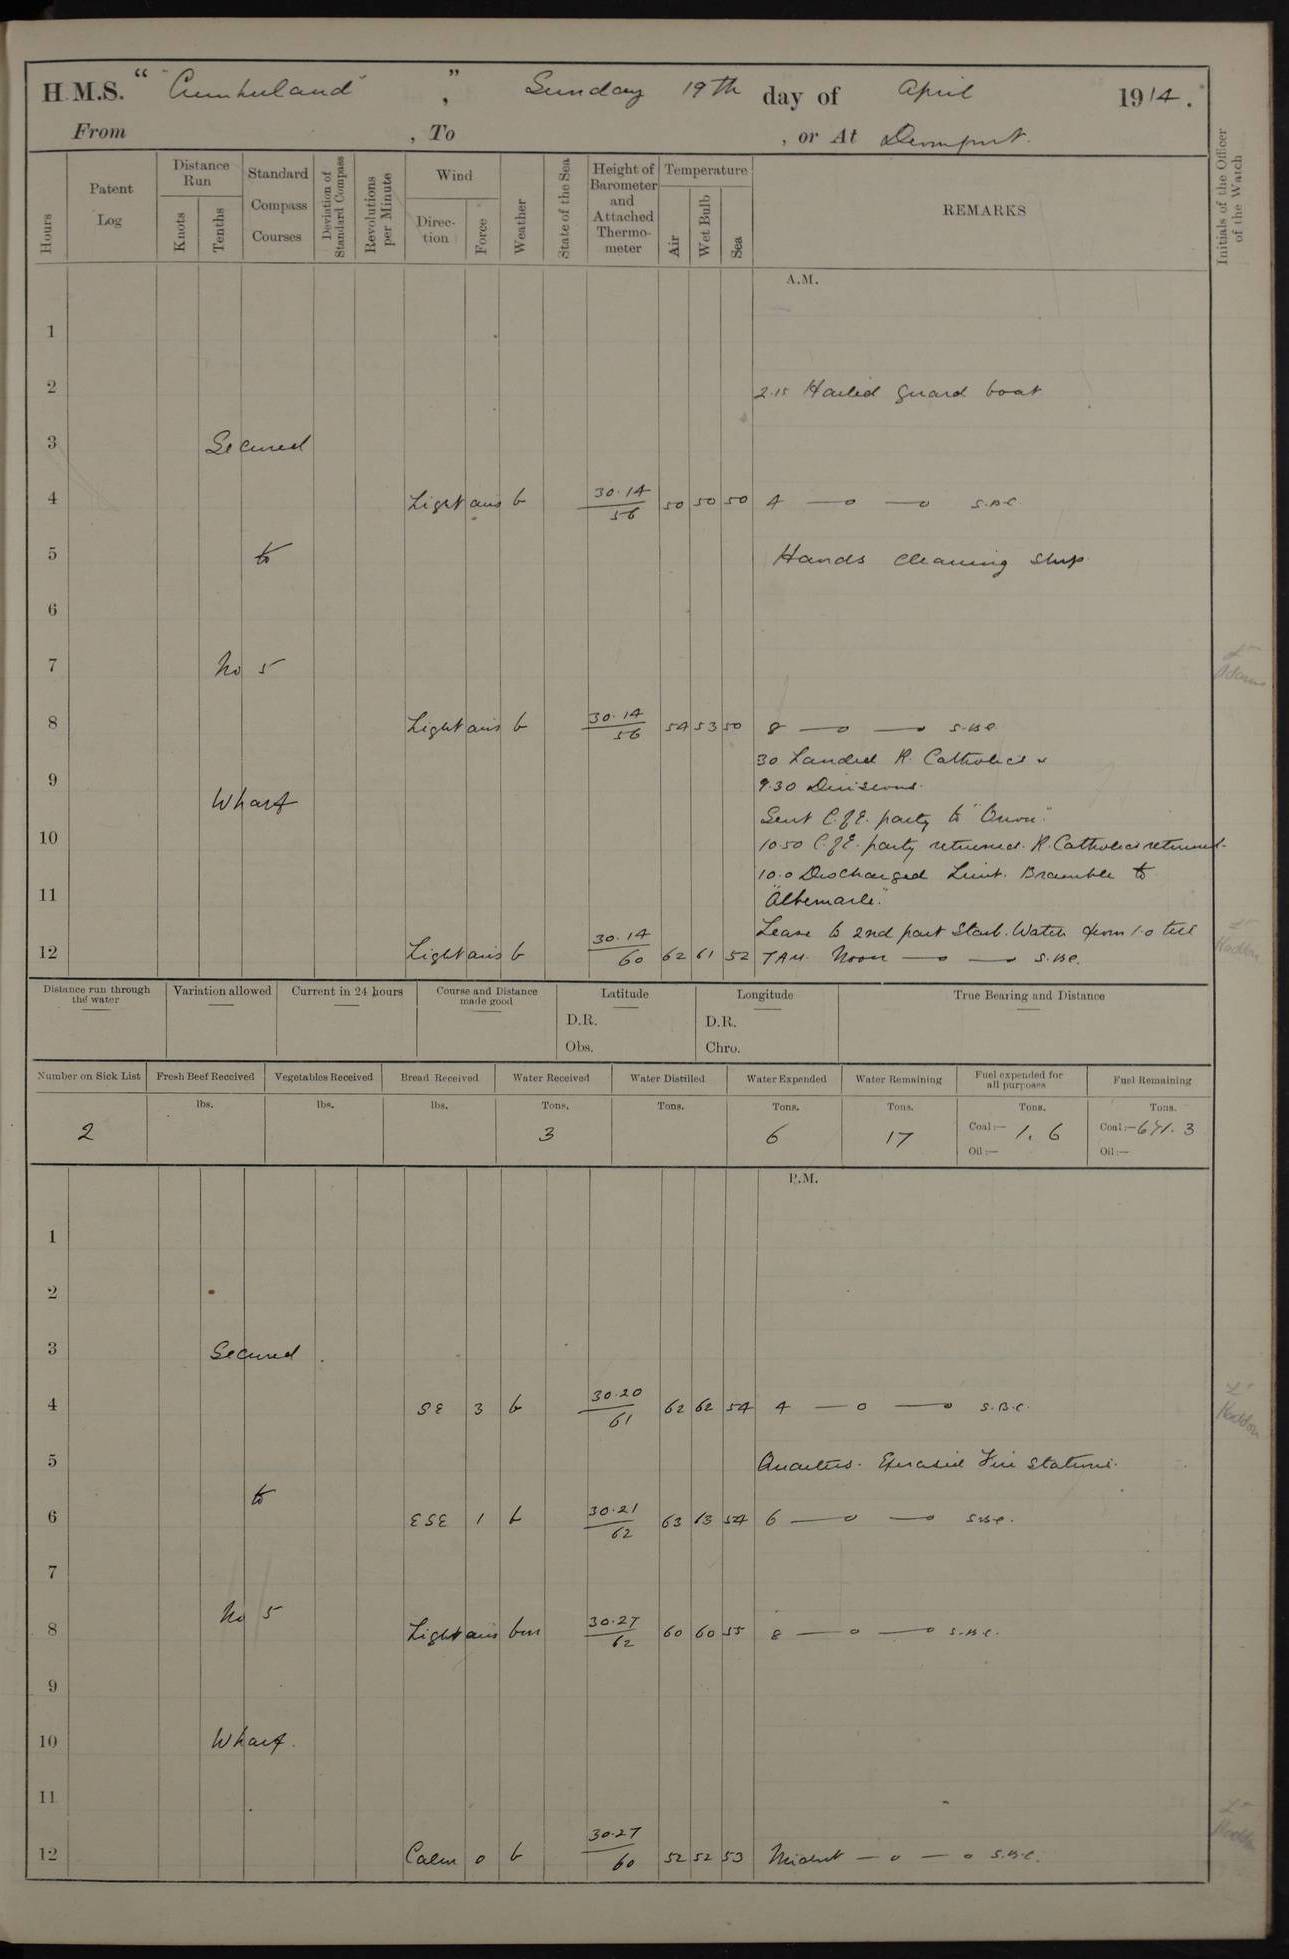 H.M.S. " "Cumberland" ", Sunday 19th day of April 1914.
From , To , or At Devonport.
Hours
Patent Log
Distance Run
Knots
Tenths
Standard Compass Courses
Deviation of Standard Compass
Revolutions per Minute
Wind
Direction
Force
Weather
State of the Sea
Height of Barometer and Attached Thermometer
Temperature
Air
Wet Bulb
Sea
REMARKS
Initials of the Officer of the Watch
A.M.
1
2 2.15 Hailed guard boat
3 Secured
4 Light airs b 30.14/56 50 50 50 4 —o —o S.B.C.
5 to Hands cleaning ship.
6
7 No 5
Adams
8 Light airs b 30.14/56 54 53 50 8 —o —o S.B.C.
30 Landed R. Catholics
9 9.30 Divisions.
Wharf
Sent C. of E. party to
10 10.50 C. of E. party returned. R. Catholics returned.
10.0 Discharged Lieut. Bramble to
11 "Albemarle."
Leave to 2nd part Starb. Watch from 1.0 till
12 Light airs b 30.14/60 62 61 52 7 AM. Noon —o —o S.B.C.
Haddon
Distance run through the water
Variation allowed
Current in 24 hours
Course and Distance made good
Latitude
D.R.
Obs.
Longitude
D.R.
Chro.
True Bearing and Distance
Number on Sick List
Fresh Beef Received
Vegetables Received
Bread Received
Water Received
Water Distilled
Water Expended
Water Remaining
Fuel expended for all purposes
Fuel Remaining
lbs. lbs. lbs. Tons. Tons. Tons. Tons. Tons. Tons.
2 3 6 17 Coal:— 1.6 Coal:—
Oil:— Oil:—
P.M.
1
2
3 Secured
4 SE 3 b 30.20/61 62 62 54 4 —o —o S.B.C.
Haddon
5 Quarters. Exercised Fire Stations.
to
6 ESE 1 b 30.21/62 63 63 54 6 —o —o S.B.C.
7
No 5
8 Light airs bm 30.27/62 60 60 55 8 —o —o S.B.C.
9
10 Wharf.
11
12 Calm 0 b 30.27/60 52 52 53 Midnt —o —o S.B.C.
Haddon